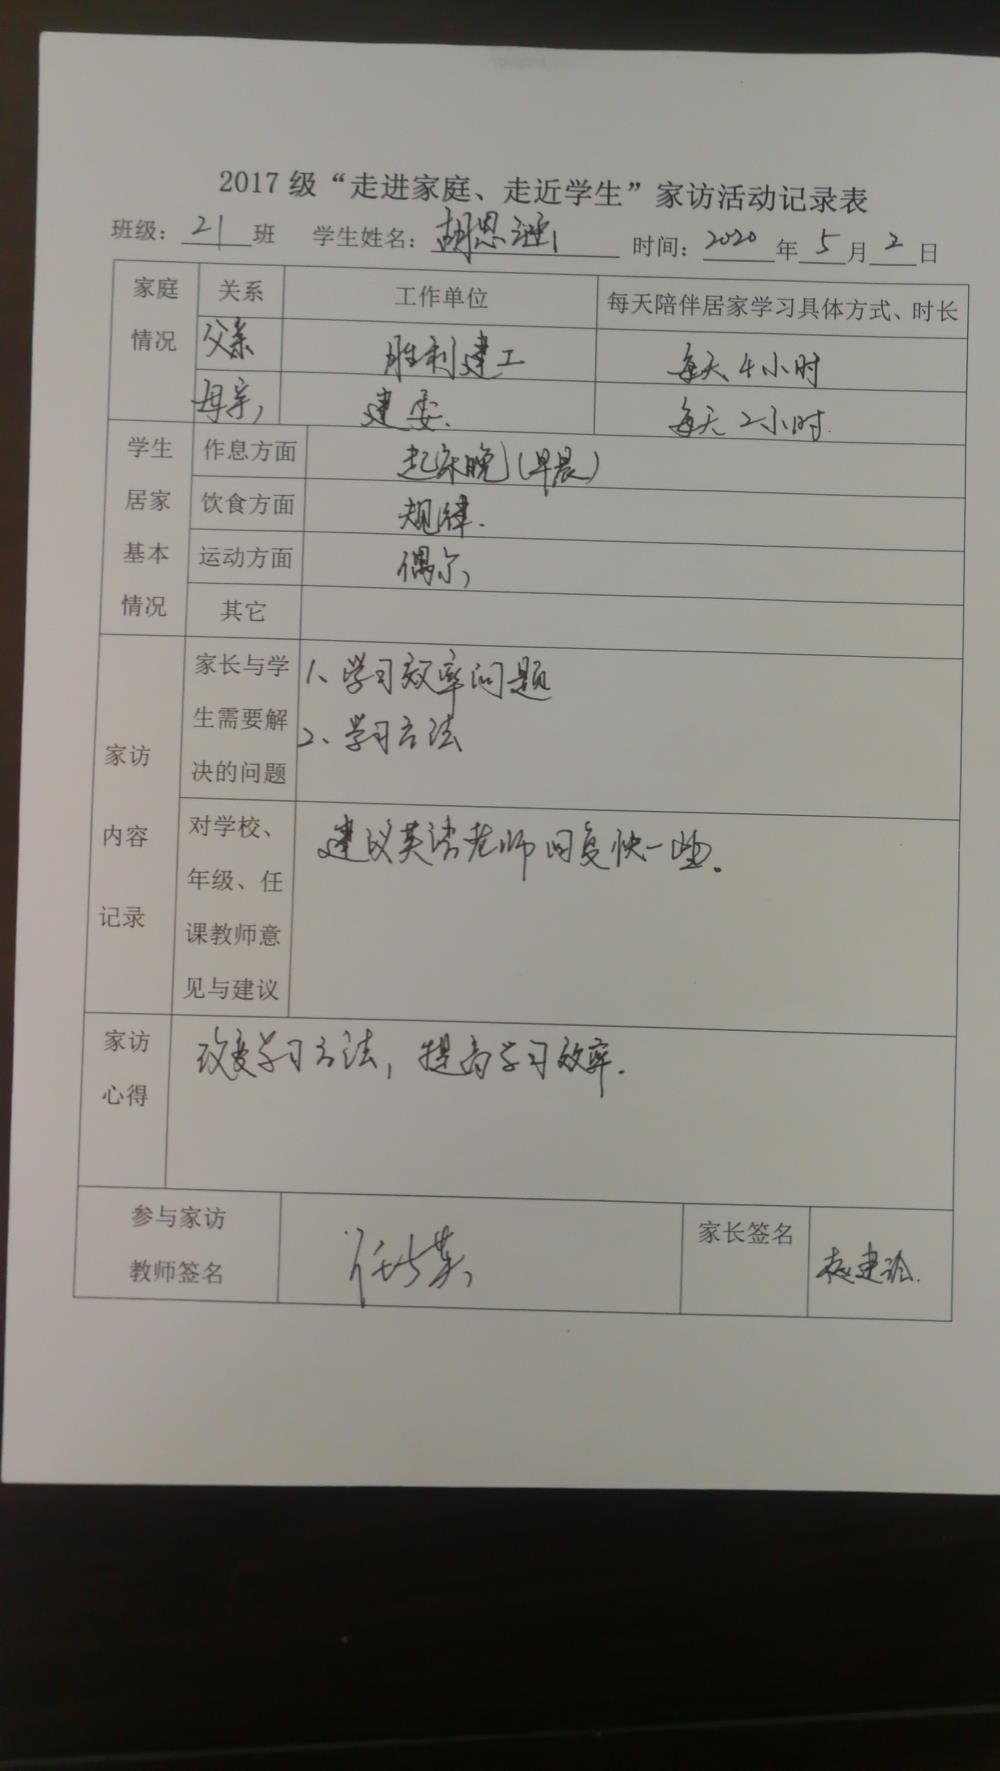 2017 级“走进家庭、走近学生”家访活动记录表
班级：21班 学生姓名：胡思涵 时间：2020年5月2日
家庭情况 关系 工作单位 每天陪伴居家学习具体方式、时长
父亲 胜利建工 每天4小时
母亲 建委 每天2小时
学生居家基本情况 作息方面 起床晚（早晨）
饮食方面 规律.
运动方面 偶尔
其它
家访内容记录
家长与学
生需要解
决的问题
1、学习效率问题
2、学习方法
对学校、
年级、任
课教师意
见与建议
建议英语老师回复快一些。
家访
心得
改变学习方法，提高学习效率.
参与家访
教师签名
家长签名